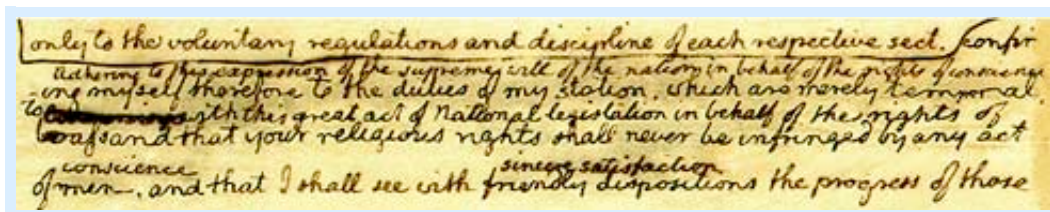 only to the voluntary regulations and discipline of each respective sect. confin
adhering to this expression of the supreme will of the nation in behalf of the rights of conscience
ing myself therefore to the duties of my station, which are merely temporal,
with this great act of National legislation in behalf of the rights of
and that your religious rights shall never be infringed by any act
conscience sincere satisfaction
of men, and that I shall see with friendly dispositions the progress of those